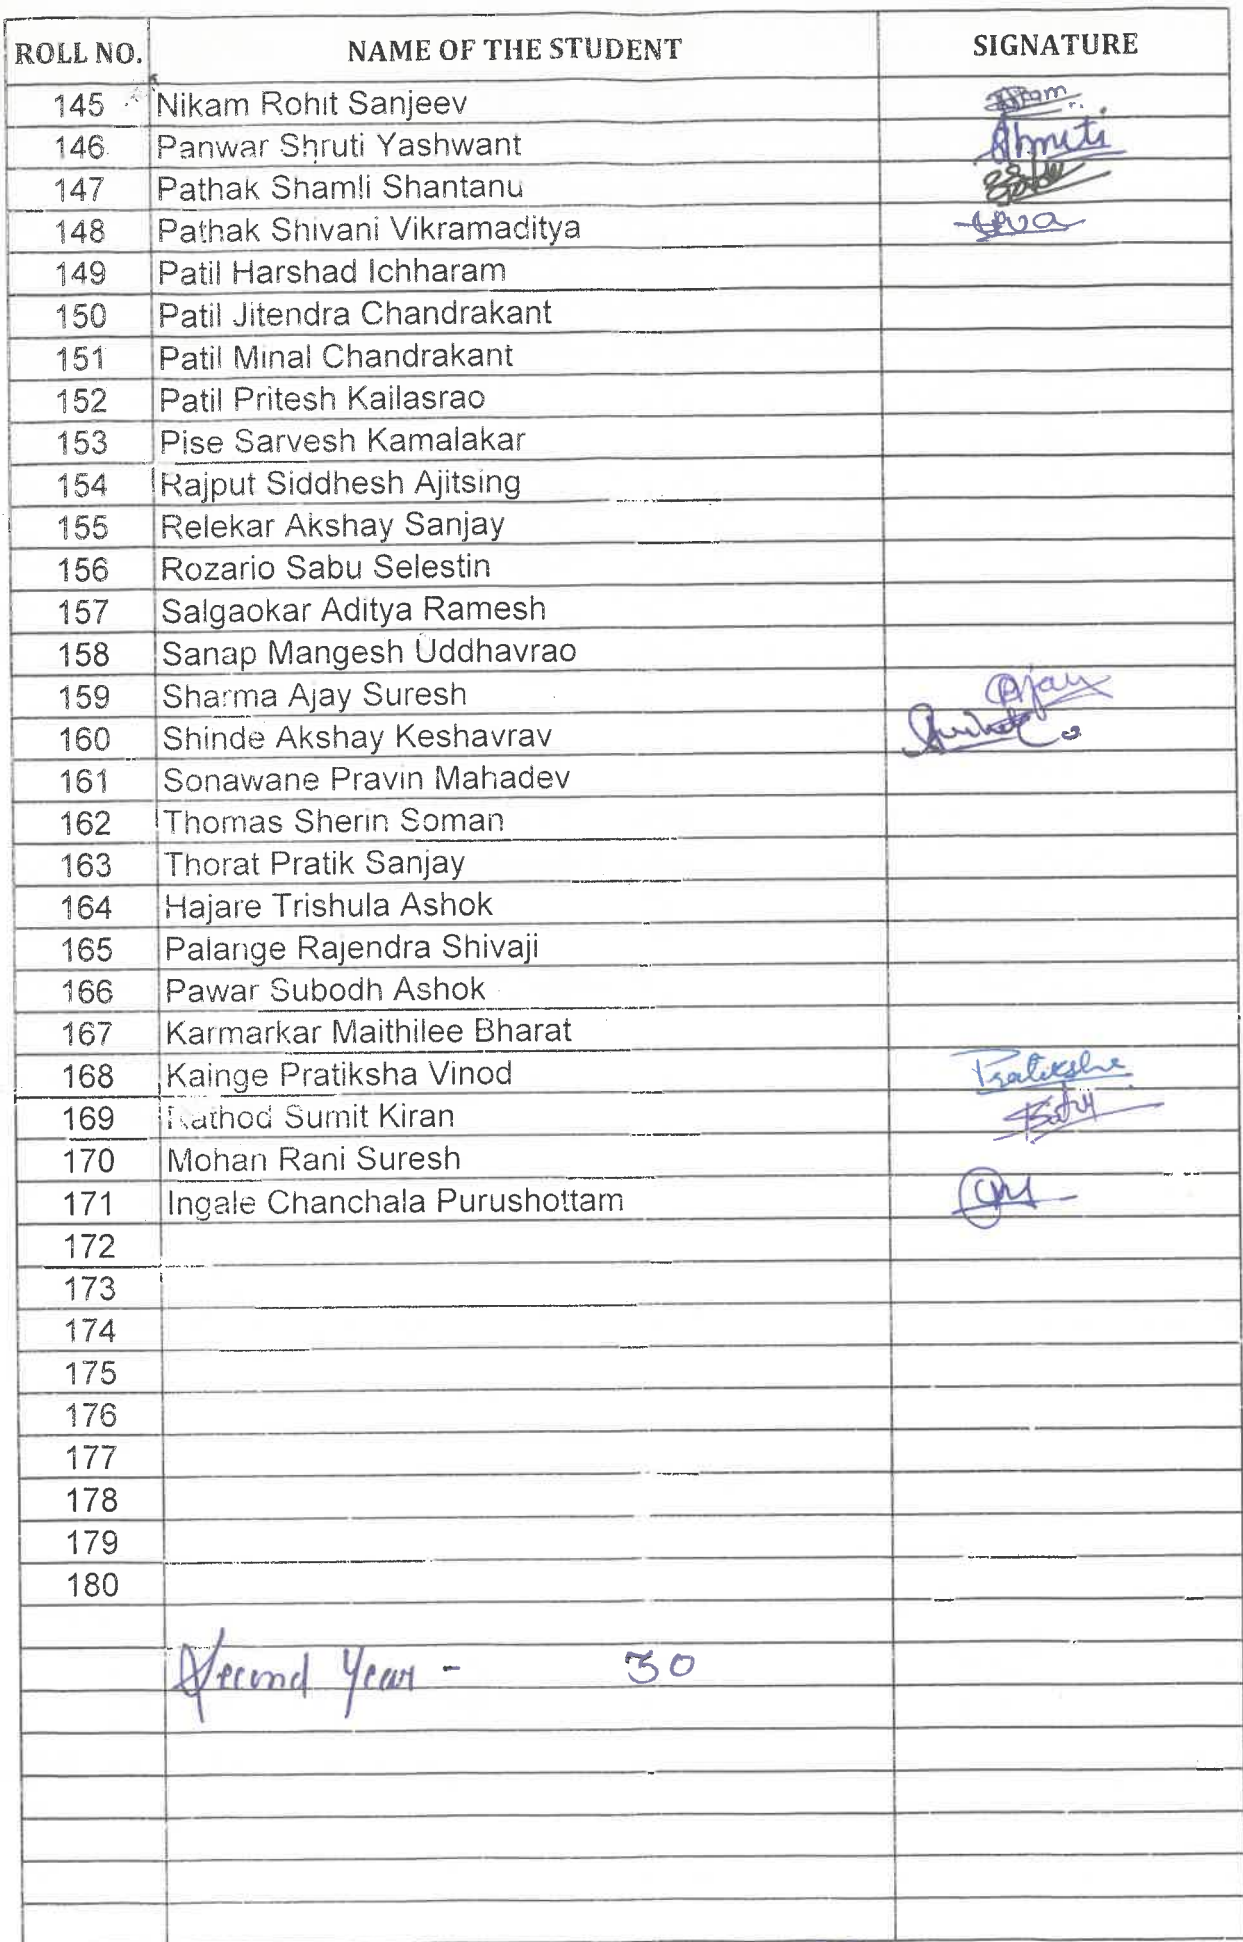 ROLL NO. NAME OF THE STUDENT SIGNATURE
145 Nikam Rohit Sanjeev
146 Panwar Shruti Yashwant Shruti
147 Pathak Shamli Shantanu
148 Pathak Shivani Vikramaditya
149 Patil Harshad Ichharam
150 Patil Jitendra Chandrakant
151 Patil Minal Chandrakant
152 Patil Pritesh Kailasrao
153 Pise Sarvesh Kamalakar
154 Rajput Siddhesh Ajitsing
155 Relekar Akshay Sanjay
156 Rozario Sabu Selestin
157 Salgaokar Aditya Ramesh
158 Sanap Mangesh Uddhavrao
159 Sharma Ajay Suresh Ajay
160 Shinde Akshay Keshavrav
161 Sonawane Pravin Mahadev
162 Thomas Sherin Soman
163 Thorat Pratik Sanjay
164 Hajare Trishula Ashok
165 Palange Rajendra Shivaji
166 Pawar Subodh Ashok
167 Karmarkar Maithilee Bharat
168 Kainge Pratiksha Vinod Pratiksha
169 Rathod Sumit Kiran
170 Mohan Rani Suresh
171 Ingale Chanchala Purushottam
172
173
174
175
176
177
178
179
180
Second Year - 30